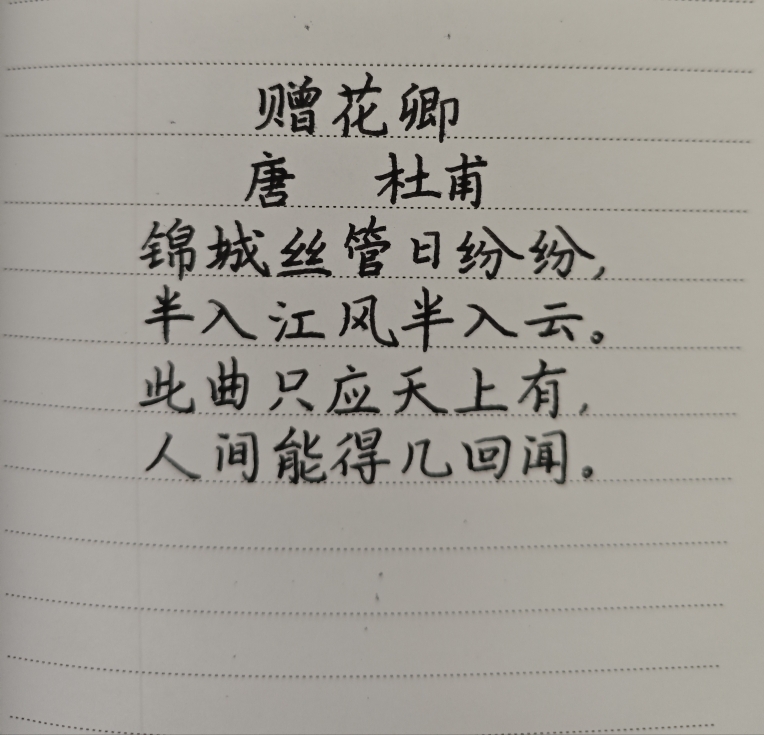 赠花卿
唐 杜甫
锦城丝管日纷纷,
半入江风半入云。
此曲只应天上有,
人间能得几回闻。